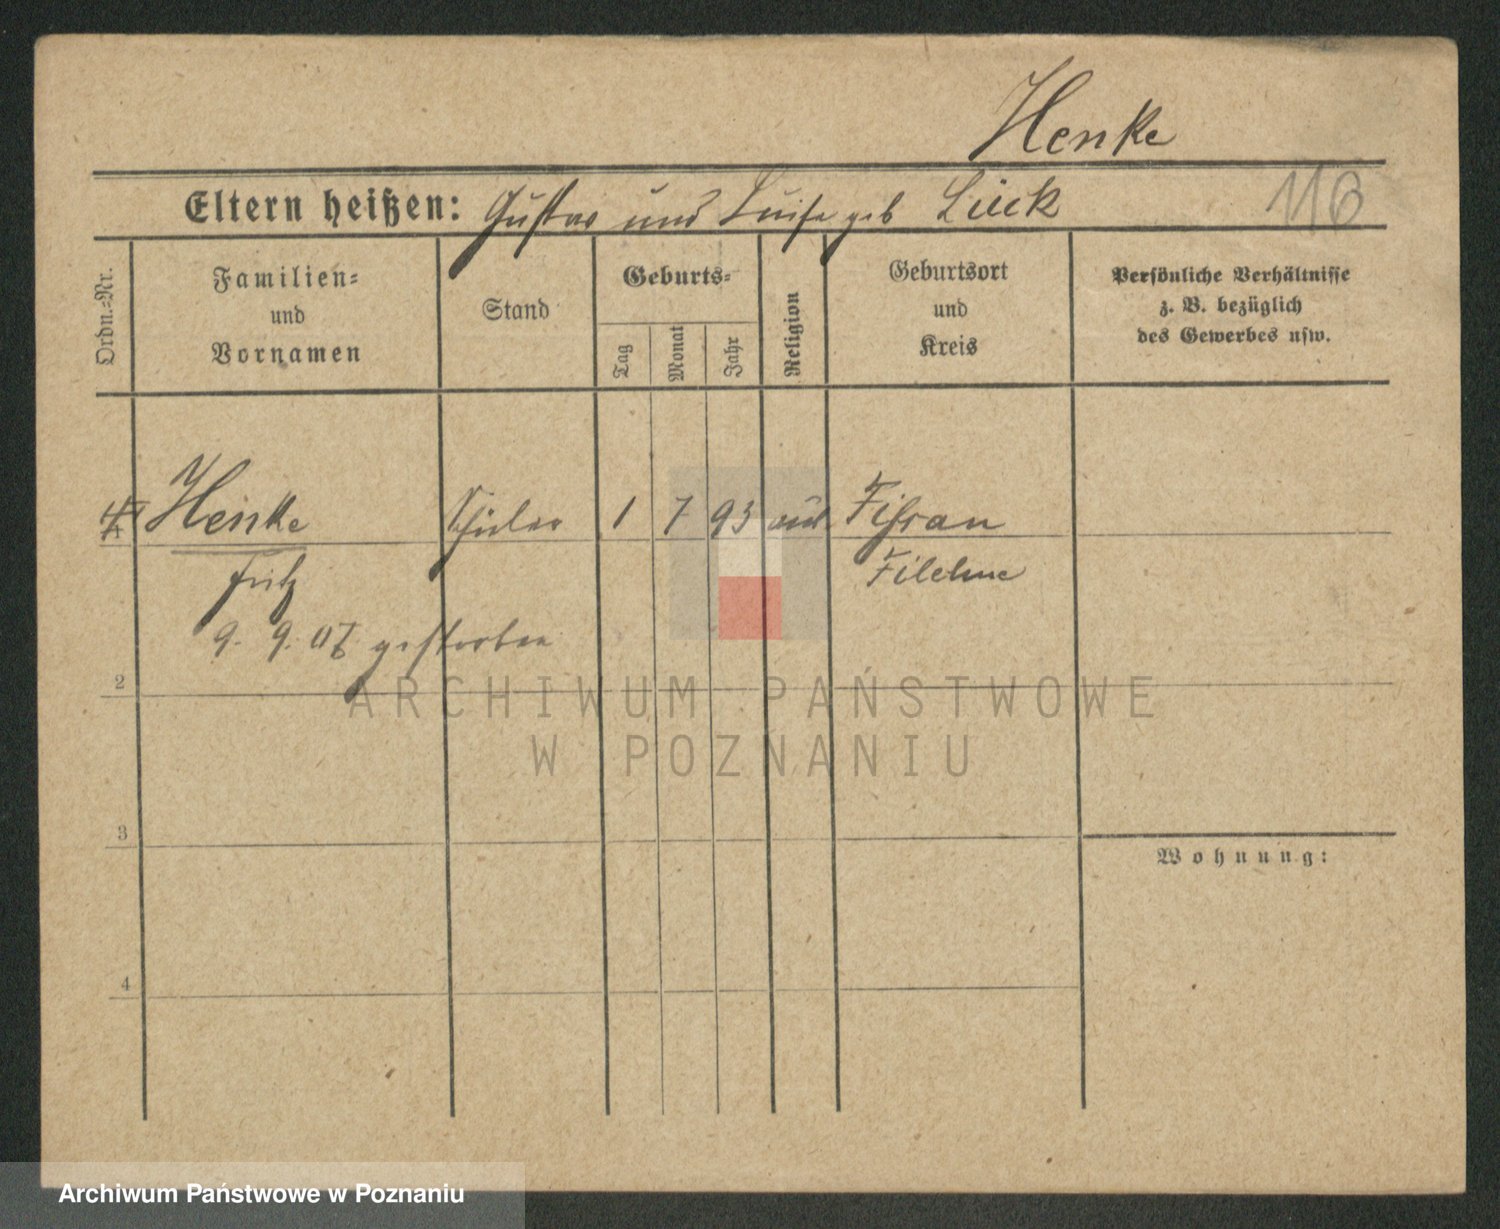 Henke
Eltern heißen: Gustav und Luise geb Lück
116
Ordn.-Nr.
Familien-
und
Vornamen
Stand
Geburts-
Tag
Monat
Jahr
Religion
Geburtsort
und
Kreis
Persönliche Verhältnisse
z. B. bezüglich
des Gewerbes usw.
1 Henke Schüler 1 7 93
Fritz Filehne
9. 9. 07 gestorben
2
ARCHIWUM PAŃSTWOWE
W POZNANIU
3
Wohnung:
4
Archiwum Państwowe w Poznaniu